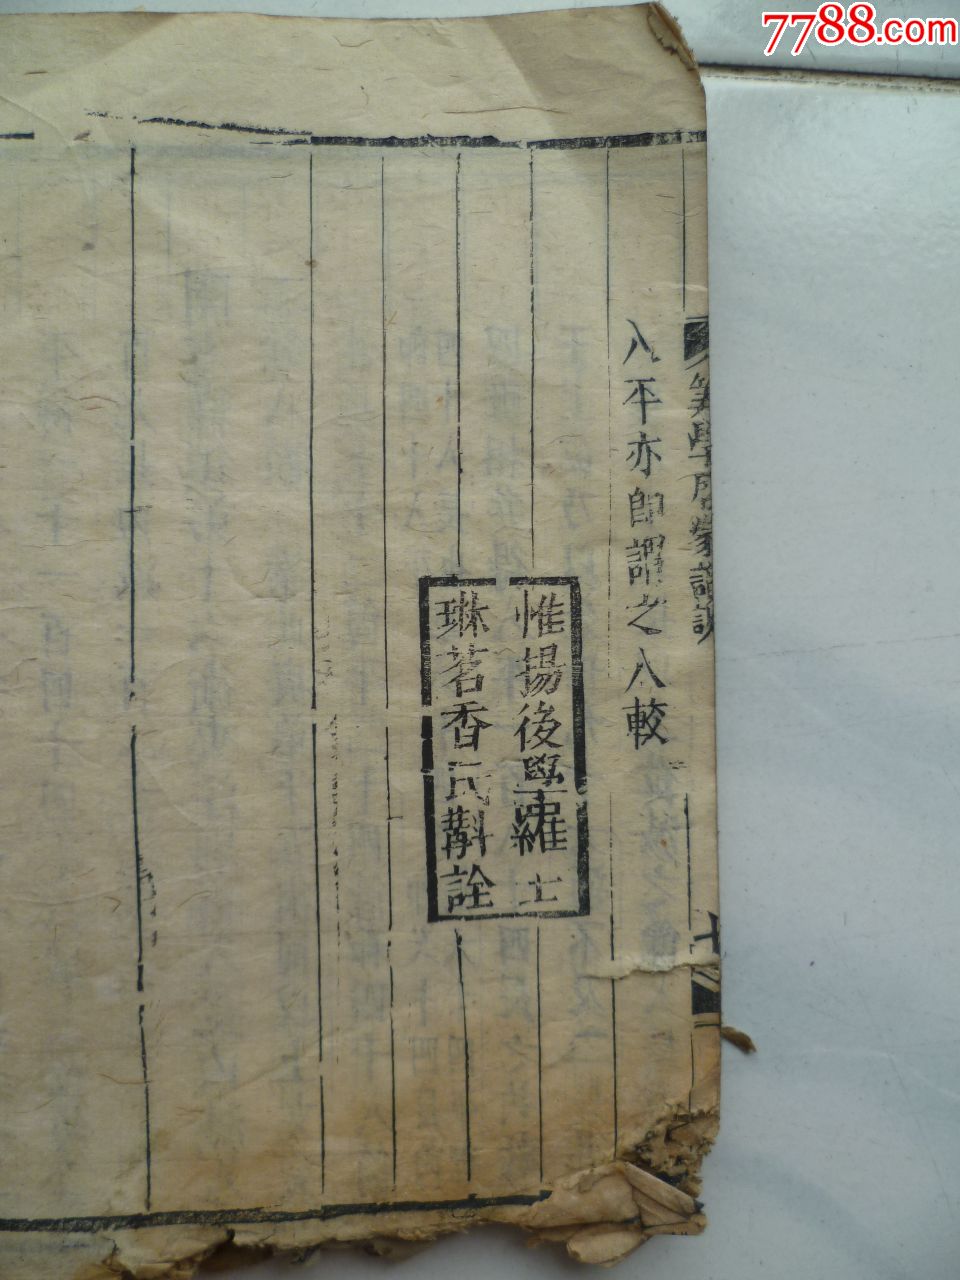 7788.com
算學啓蒙識誤
八平亦卽謂之八較
惟揚後學羅士
琳茗香氏斠詮